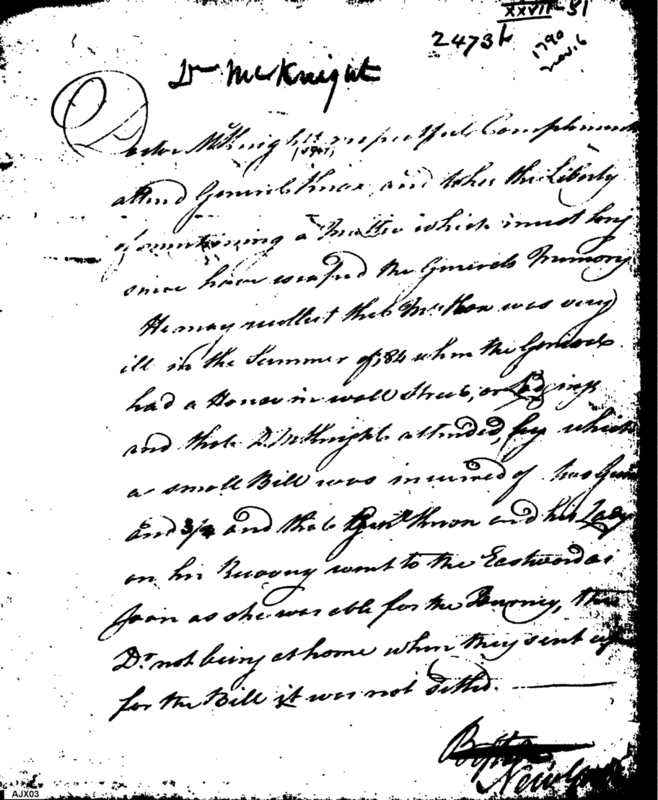 XXVII-51
2473½
1790
Nov. 6
Dr McKnight
Doctor McKnights respectful Compliments
attend General Knox, and takes the Liberty
of mentioning a Matter which must long
since have escaped the Generals Memory
He may recollect that Mrs Knox was very
ill in the Summer of, 84 when the Generals
had a House in wall Street, or Lodgings
and that D. McKnight attended, for which
a small Bill was incurred of two
and 3/4 and that Genl. Knox and his Lady
on her Recovery went to the Eastward as
soon as she was able for the Journey, the
Dr. not being at home when they sent
for the Bill it was not settled.
Boston
New
AJX03